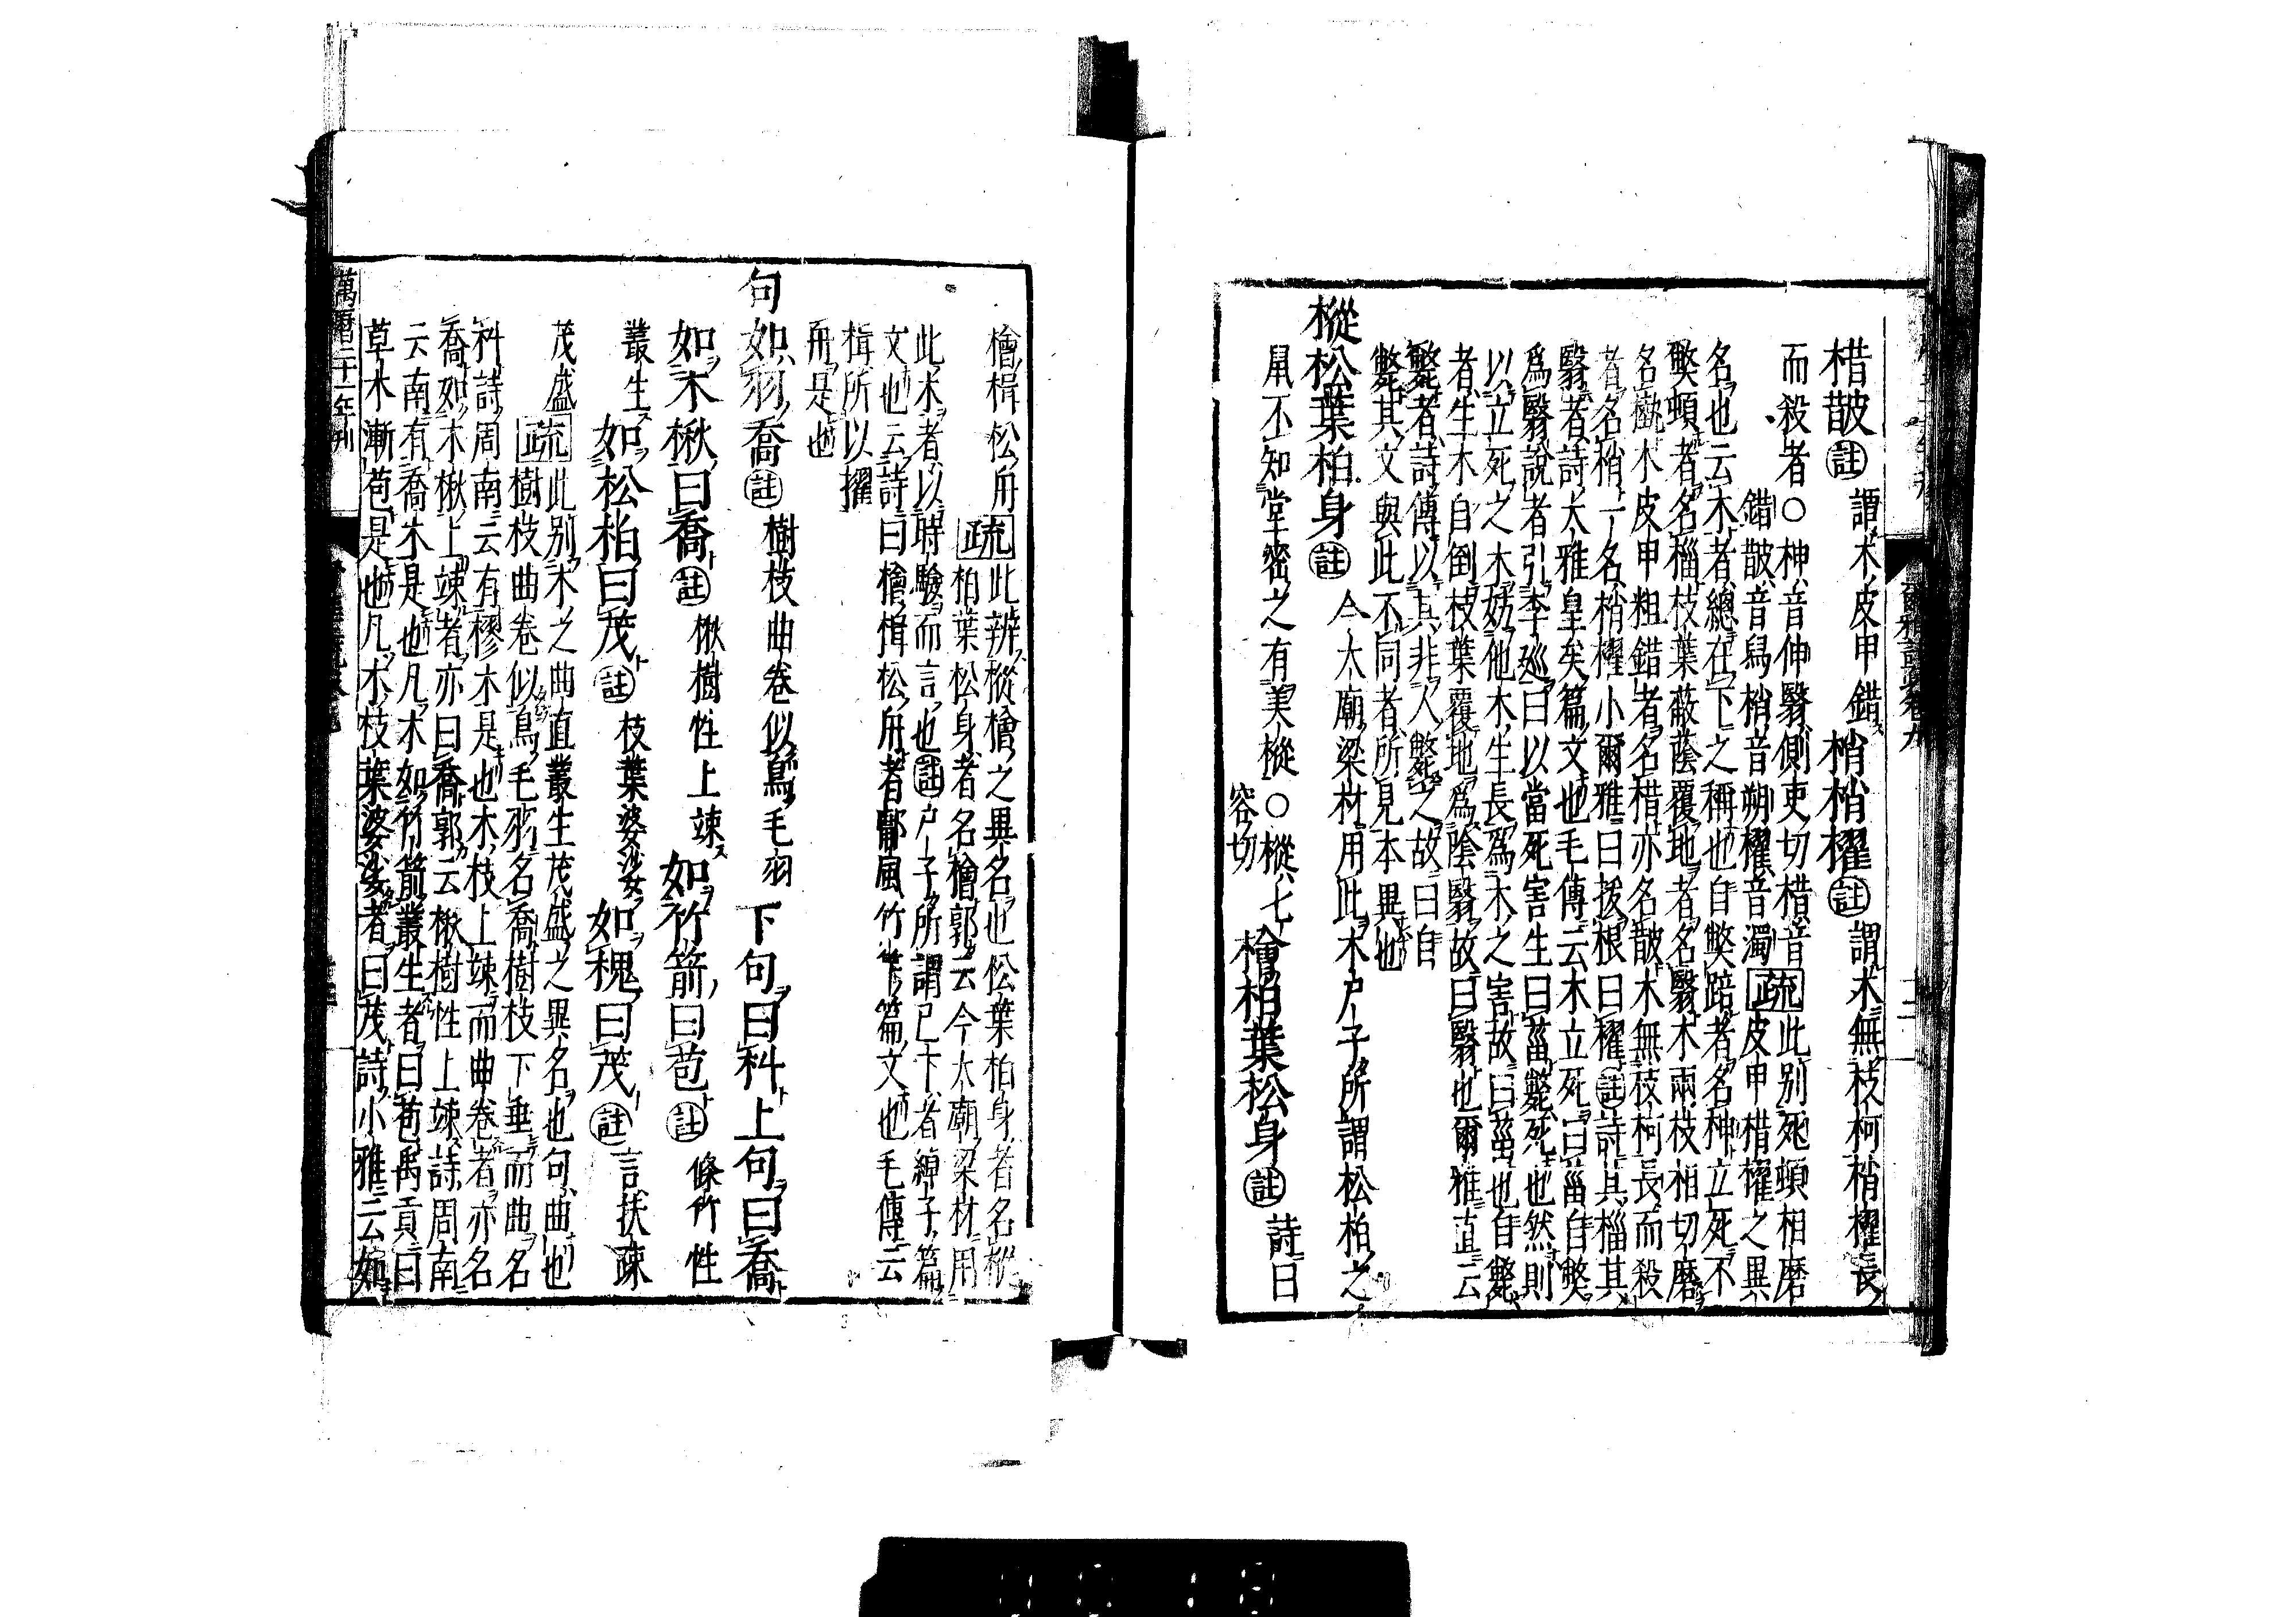 楷皵註謂木皮甲錯梢梢櫂註謂木無枝柯梢櫂長
而殺者○神音伸翳側吏切棤音
錯皵音舄梢音朔櫂音濁疏此別死頓相磨
皮甲棤櫂之異
名也云木者總在下之稱也自獘踣者名神立死不
獘頓者名椔枝葉蔽蔭覆地者名翳木兩枝相切磨
名槸木皮甲粗錯者名棤亦名皵木無枝柯長而殺
者名梢一名梢櫂小爾雅曰拔根曰櫂註詩其椔其
翳者詩大雅皇矣篇文也毛傳云木立死曰菑自獘
爲翳說者引李廵曰以當死害生曰菑斃死也然則
以立死之木妨他木生長爲木之害故曰菑也自斃
者生木自倒枝葉覆地爲陰翳故曰翳也爾雅直云
斃者詩傳以其非人斃之故曰自
斃其文與此不同者所見本異也
樅松葉柏身註今大廟梁材用此木尸子所謂松柏之
鼠不知堂密之有美樅○樅七
容切檜柏葉松身註詩曰
檜楫松舟疏此辨樅檜之異名也松葉柏身者名樅
柏葉松身者名檜郭云今大廟梁材用
此木者以時驗而言也註尸子所謂已下者綽子篇
文也云詩曰檜楫松舟者鄘風竹竿篇文也毛傳云
楫所以擢
舟是也
句如羽喬註樹枝曲卷似鳥毛羽下句曰朻上句曰喬
如木楸曰喬註楸樹性上竦如竹箭曰苞註條竹性
叢生如松柏曰茂註枝葉婆娑如槐曰茂註言扶疎
茂盛疏此別木之曲直叢生茂盛之異名也句曲也
樹枝曲卷似鳥毛羽名喬樹枝下垂而曲名
朻詩周南云有樛木是也木枝上竦而曲卷者亦名
喬如木楸上竦者亦曰喬郭云楸樹性上竦詩周南
云南有喬木是也凡木如竹箭叢生者曰苞禹貢曰
草木漸苞是也凡木枝葉婆娑者曰茂詩小雅云如
萬曆二十一年刊
爾雅註疏卷九